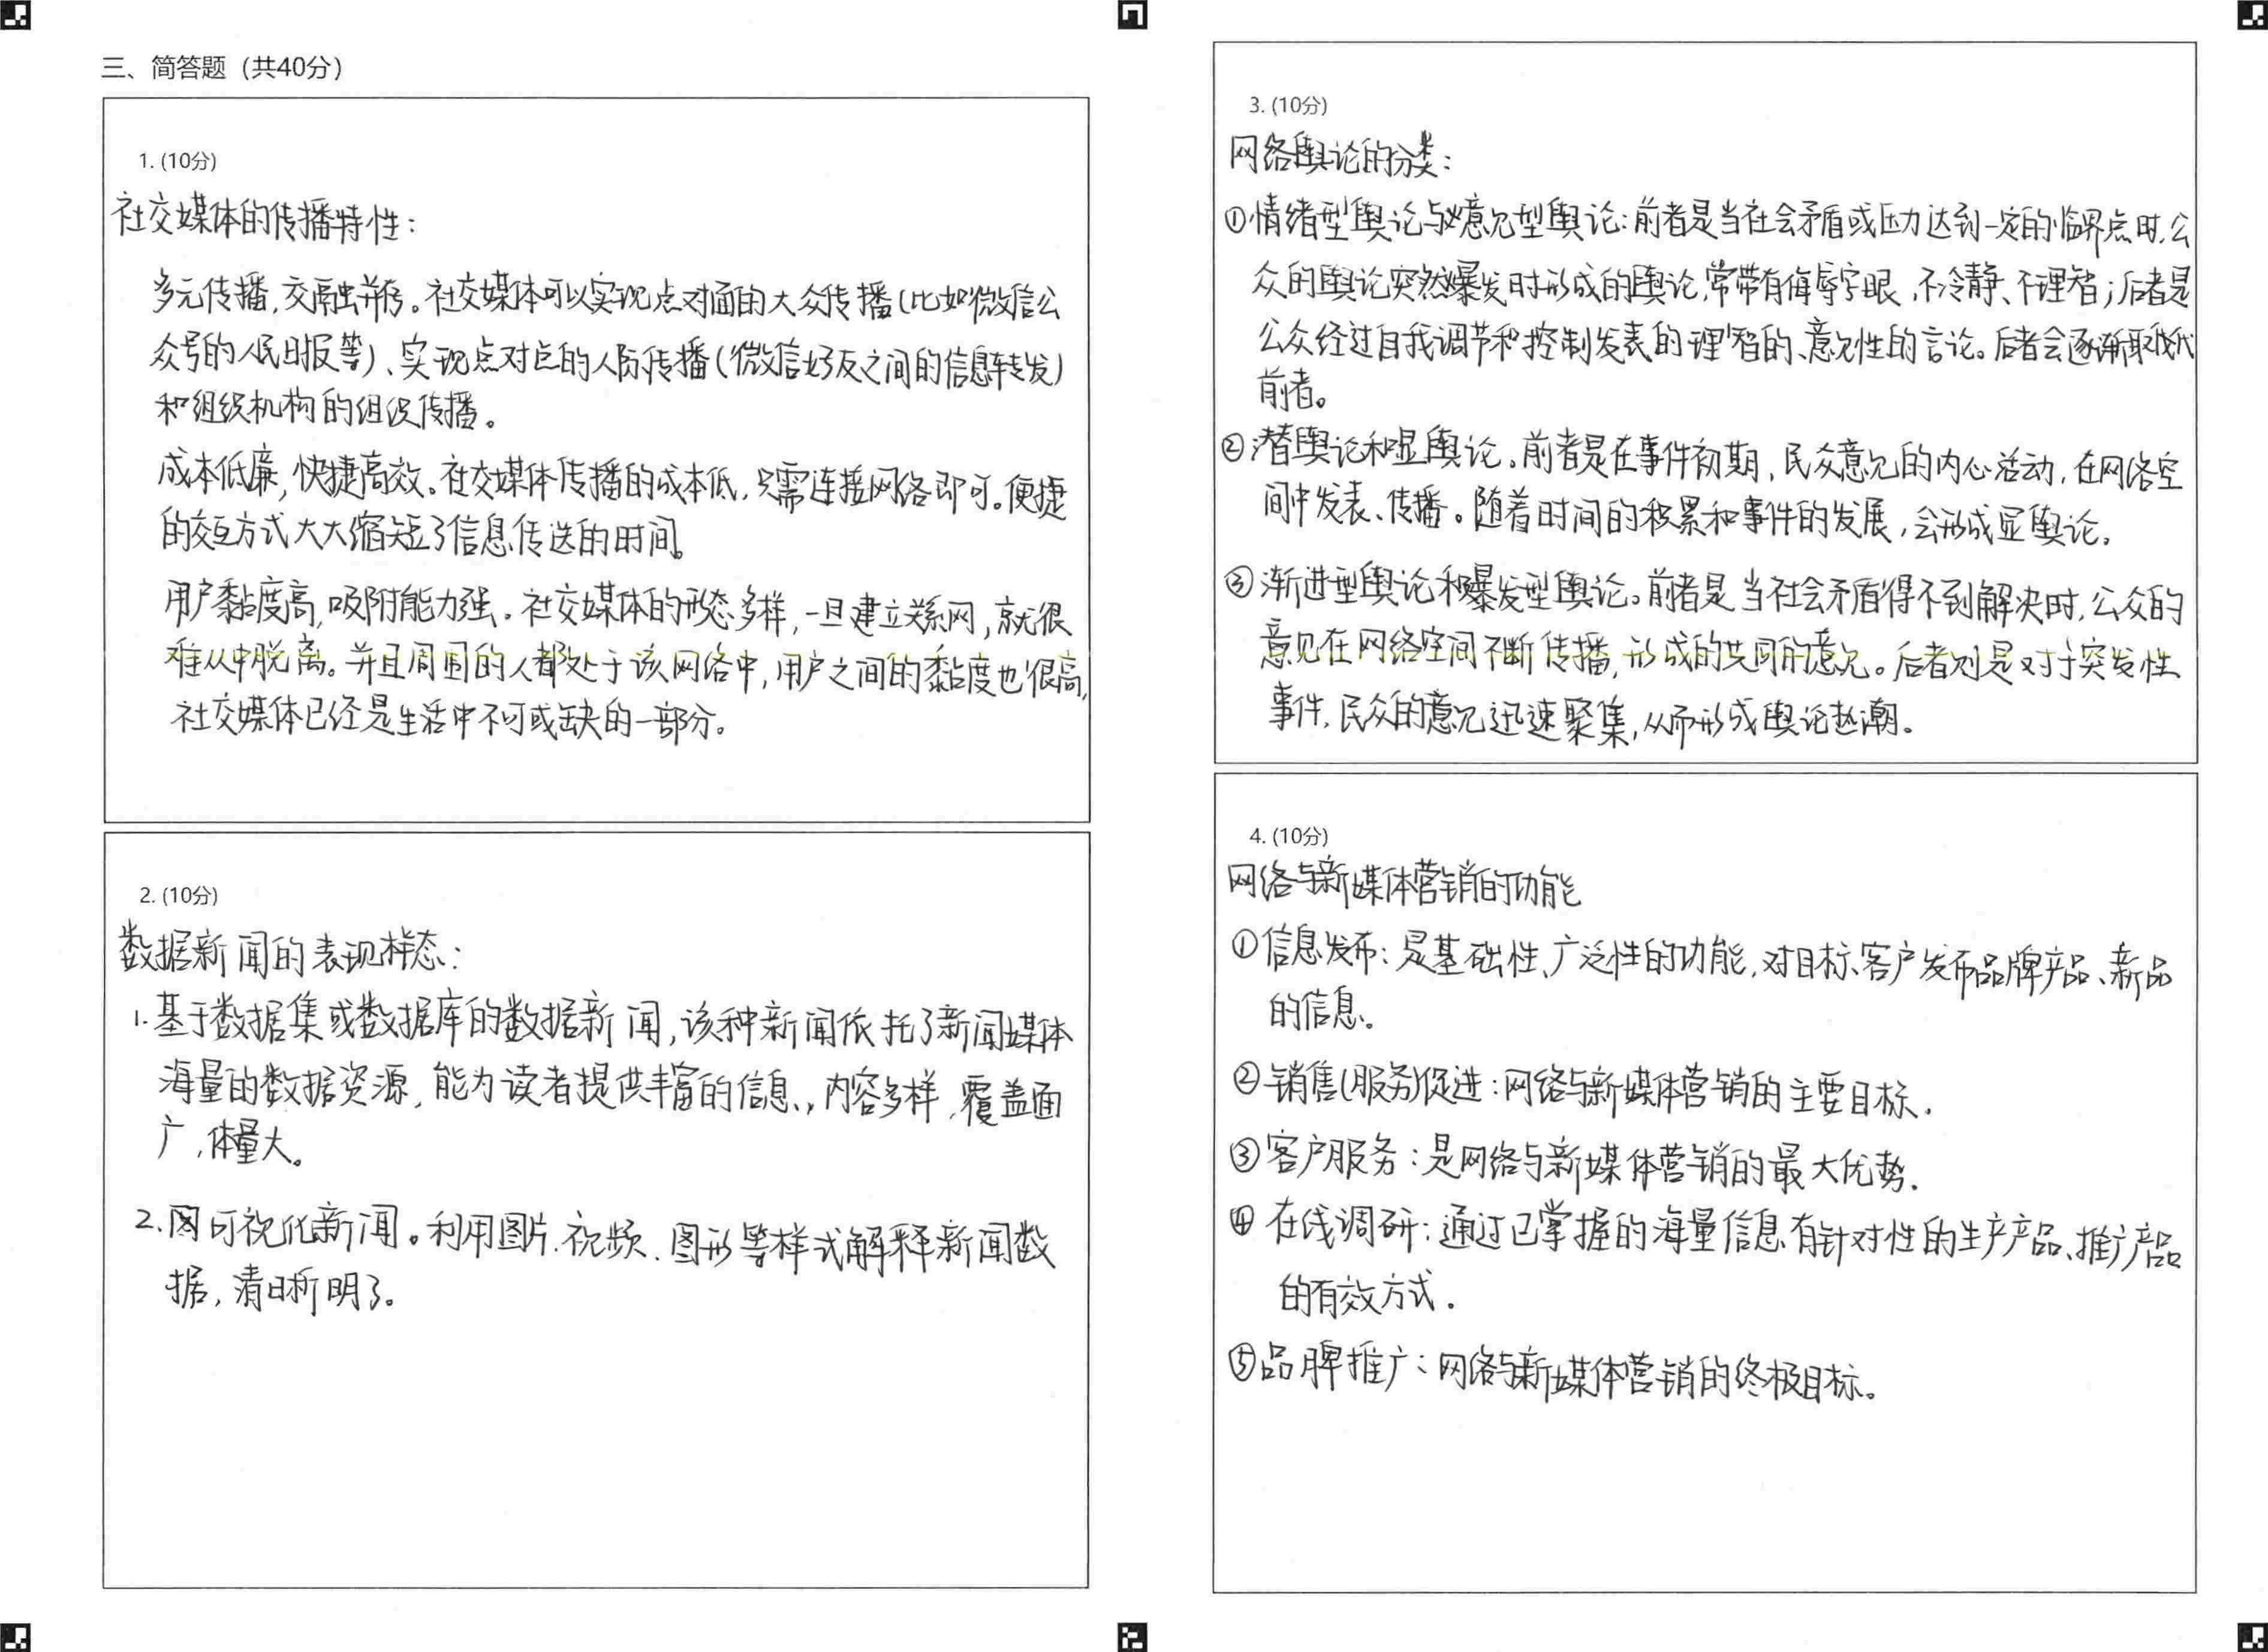 三、简答题（共40分）
1. (10分)
社交媒体的传播特性：
多元传播，交融并存。社交媒体可以实现点对面的大众传播（比如微信公
众号的人民日报等）、实现点对点的人际传播（微信好友之间的信息转发）
和组织机构的组织传播。
成本低廉，快捷高效。社交媒体传播的成本低，只需连接网络即可。便捷
的交互方式大大缩短了信息传送的时间。
用户黏度高，吸附能力强。社交媒体的形态多样，一旦建立关系网，就很
难从中脱离。并且周围的人都处于该网络中，用户之间的黏度也很高，
社交媒体已经是生活中不可或缺的一部分。
2. (10分)
数据新闻的表现样态：
1. 基于数据集或数据库的数据新闻，该种新闻依托了新闻媒体
海量的数据资源，能为读者提供丰富的信息，内容多样，覆盖面
广，体量大。
2. 可视化新闻。利用图片、视频、图形等样式解释新闻数
据，清晰明了。
3. (10分)
网络舆论的分类：
①情绪型舆论与意见型舆论：前者是当社会矛盾或压力达到一定的临界点时，公
众的舆论突然爆发时形成的舆论，常带有侮辱字眼，不冷静、不理智；后者是
公众经过自我调节和控制发表的理智的、意见性的言论。后者会逐渐取代
前者。
②潜舆论和显舆论。前者是在事件初期，民众意见的内心活动，在网络空
间中发表、传播。随着时间的积累和事件的发展，会形成显舆论。
③渐进型舆论和爆发型舆论。前者是当社会矛盾得不到解决时，公众的
意见在网络空间不断传播，形成的共同的意见。后者则是对于突发性
事件，民众的意见迅速聚集，从而形成舆论热潮。
4. (10分)
网络与新媒体营销的功能
①信息发布：是基础性、广泛性的功能，对目标客户发布品牌产品、新品
的信息。
②销售(服务)促进：网络与新媒体营销的主要目标.
③客户服务：是网络与新媒体营销的最大优势.
④在线调研：通过已掌握的海量信息有针对性的生产产品、推广产品
的有效方式.
⑤品牌推广：网络与新媒体营销的终极目标。